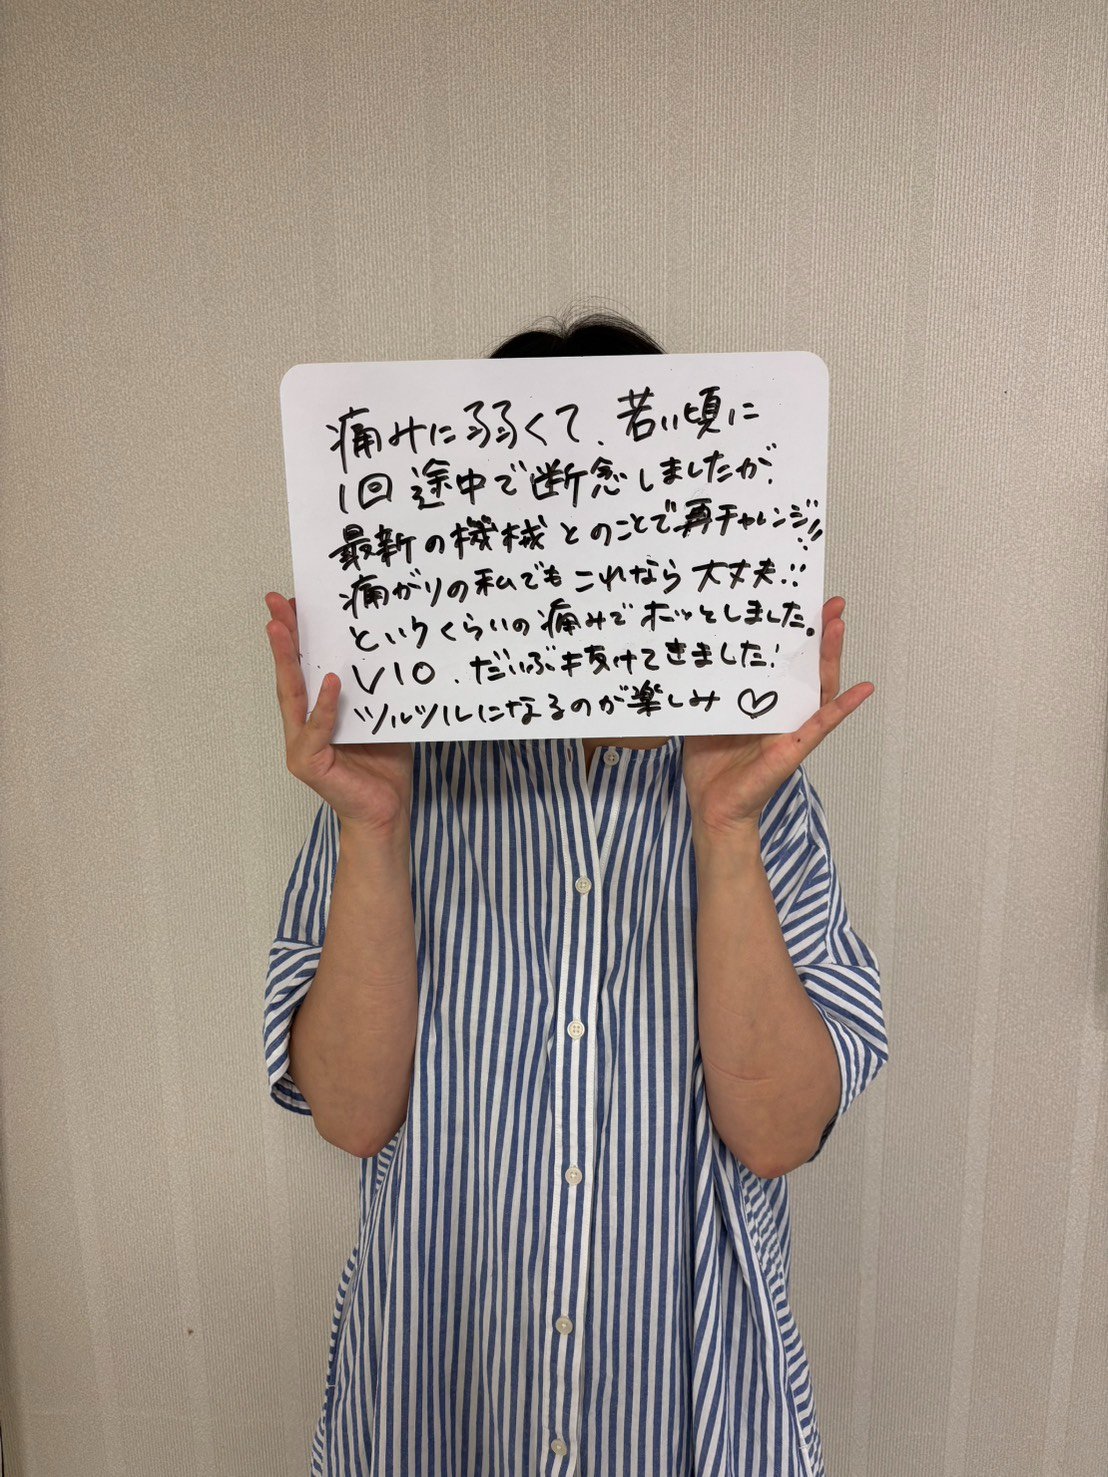 痛みに弱くて、若い頃に
1回途中で断念しましたが、
最新の機械とのことで再チャレンジ!!
痛がりの私でもこれなら大丈夫!!
というくらいの痛みでホッとしました。
VIO、だいぶ抜けてきました!
ツルツルになるのが楽しみ♡